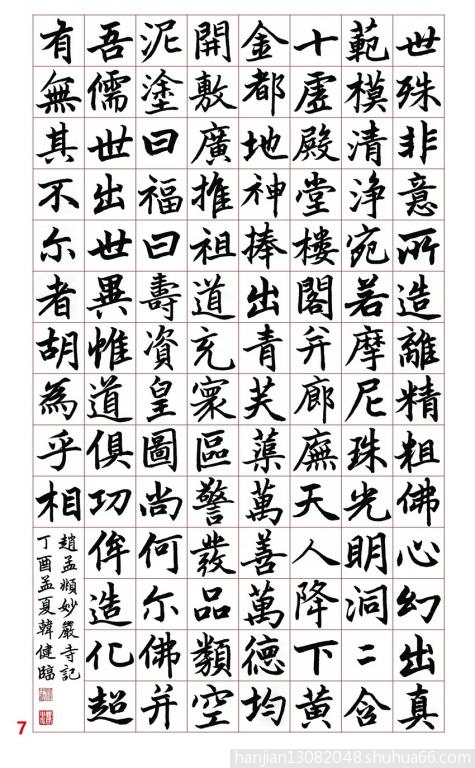 世殊非意所造離精粗佛心幻出真
範模清淨宛若摩尼珠光明洞二含
十虛殿堂樓閣并廊廡天人降下黃
金都地神捧出青芙蕖萬善萬德均
開敷廣推祖道充寰區警發品類空
泥塗曰福曰壽資皇圖尚何尔佛并
吾儒世出世異惟道俱功侔造化超
有無其不尔者胡為乎相
趙孟頫妙嚴寺記
丁酉孟夏韓健臨
7
hanjian13082048.shuhua66.com